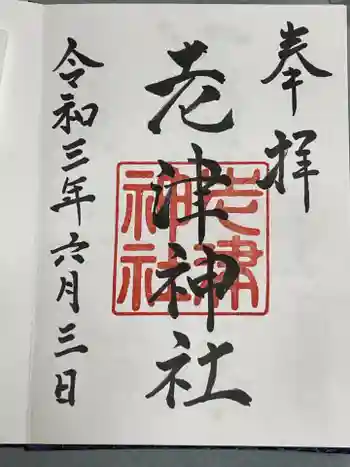 奉拝
老津神社
老津神社
令和三年六月三日